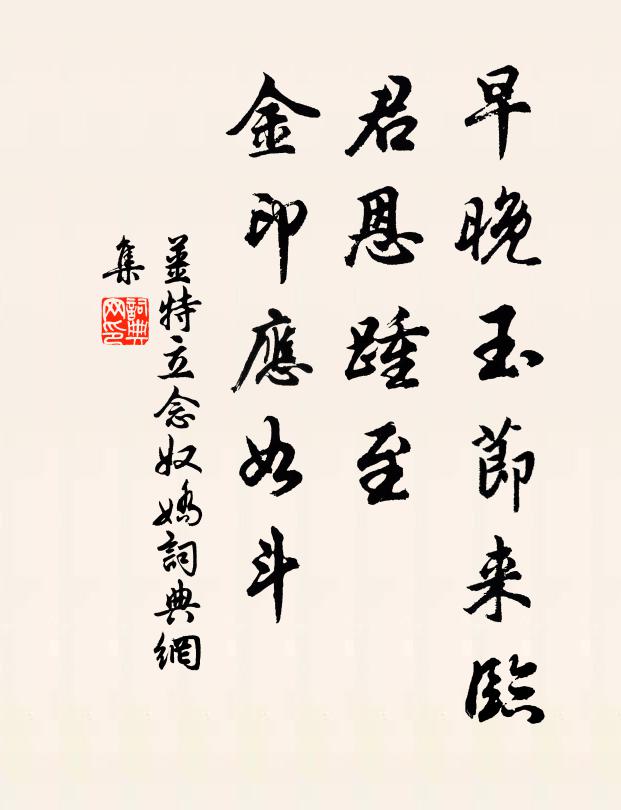 早晚玉節来臨
君恩踵至
金印應如斗
姜特立念奴嬌詞典網
集
詞典
网印